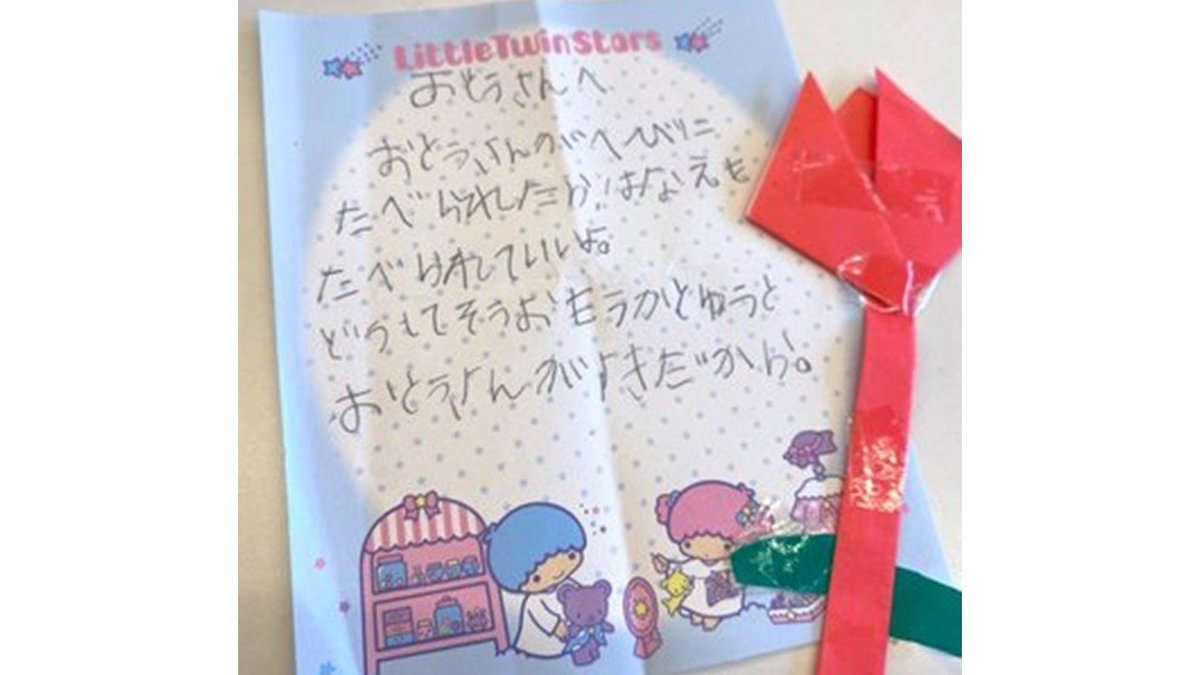 LittleTwinStars
おとうさんへ
おとうさんがへびに
たべられしたら、はなえも
たべられていいよ。
どうしてそうおもうかとゆうと
おとうさんがすきだから。